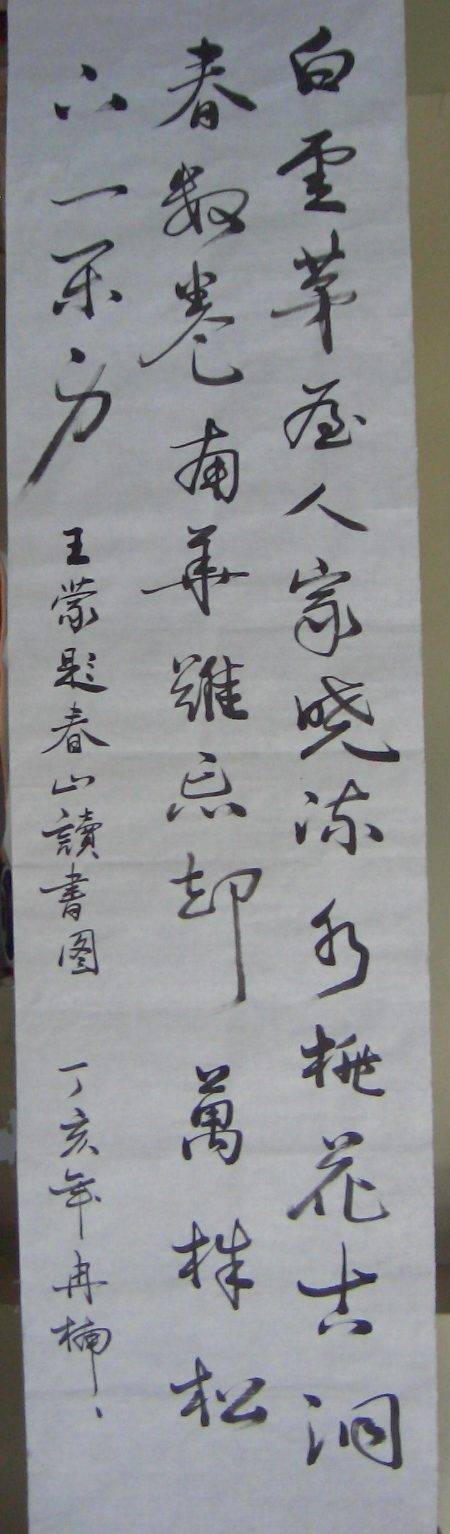 白雲茅屋人家晓流水桃花古洞
春数卷南華難忘却萬株松
下一閑身 王蒙題春山讀書图 丁亥年冉楠